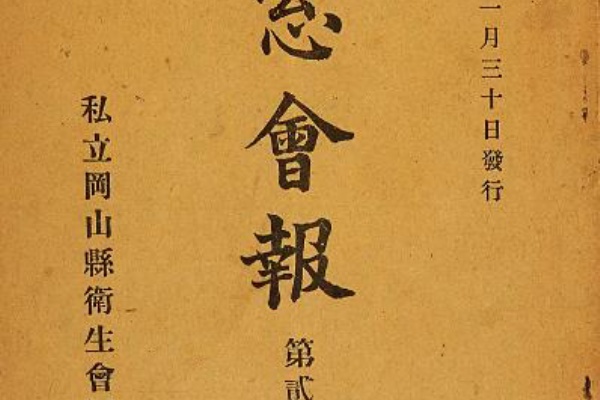 一月三十日發行
會報
第貳
私立岡山縣衛生會